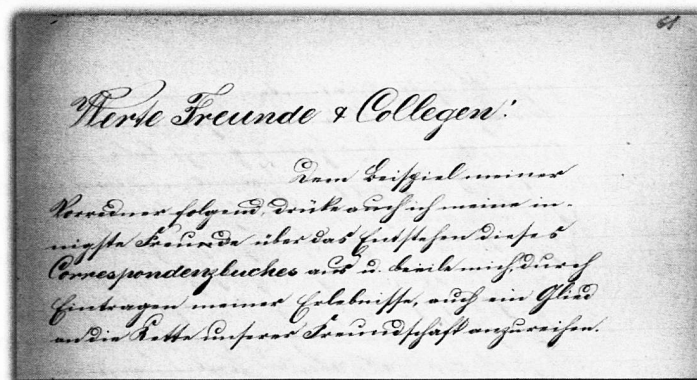 61
Werte Freunde & Collegen!
Dem Beispiel meiner
Vorredner folgend, drücke auch ich meine in-
nigste Freude über das Entstehen dieses
Correspondenzbuches aus u. beeile mich, durch
Eintragen meiner Erlebnisse, auch ein Glied
an die Kette unserer Freundschaft anzureihen.